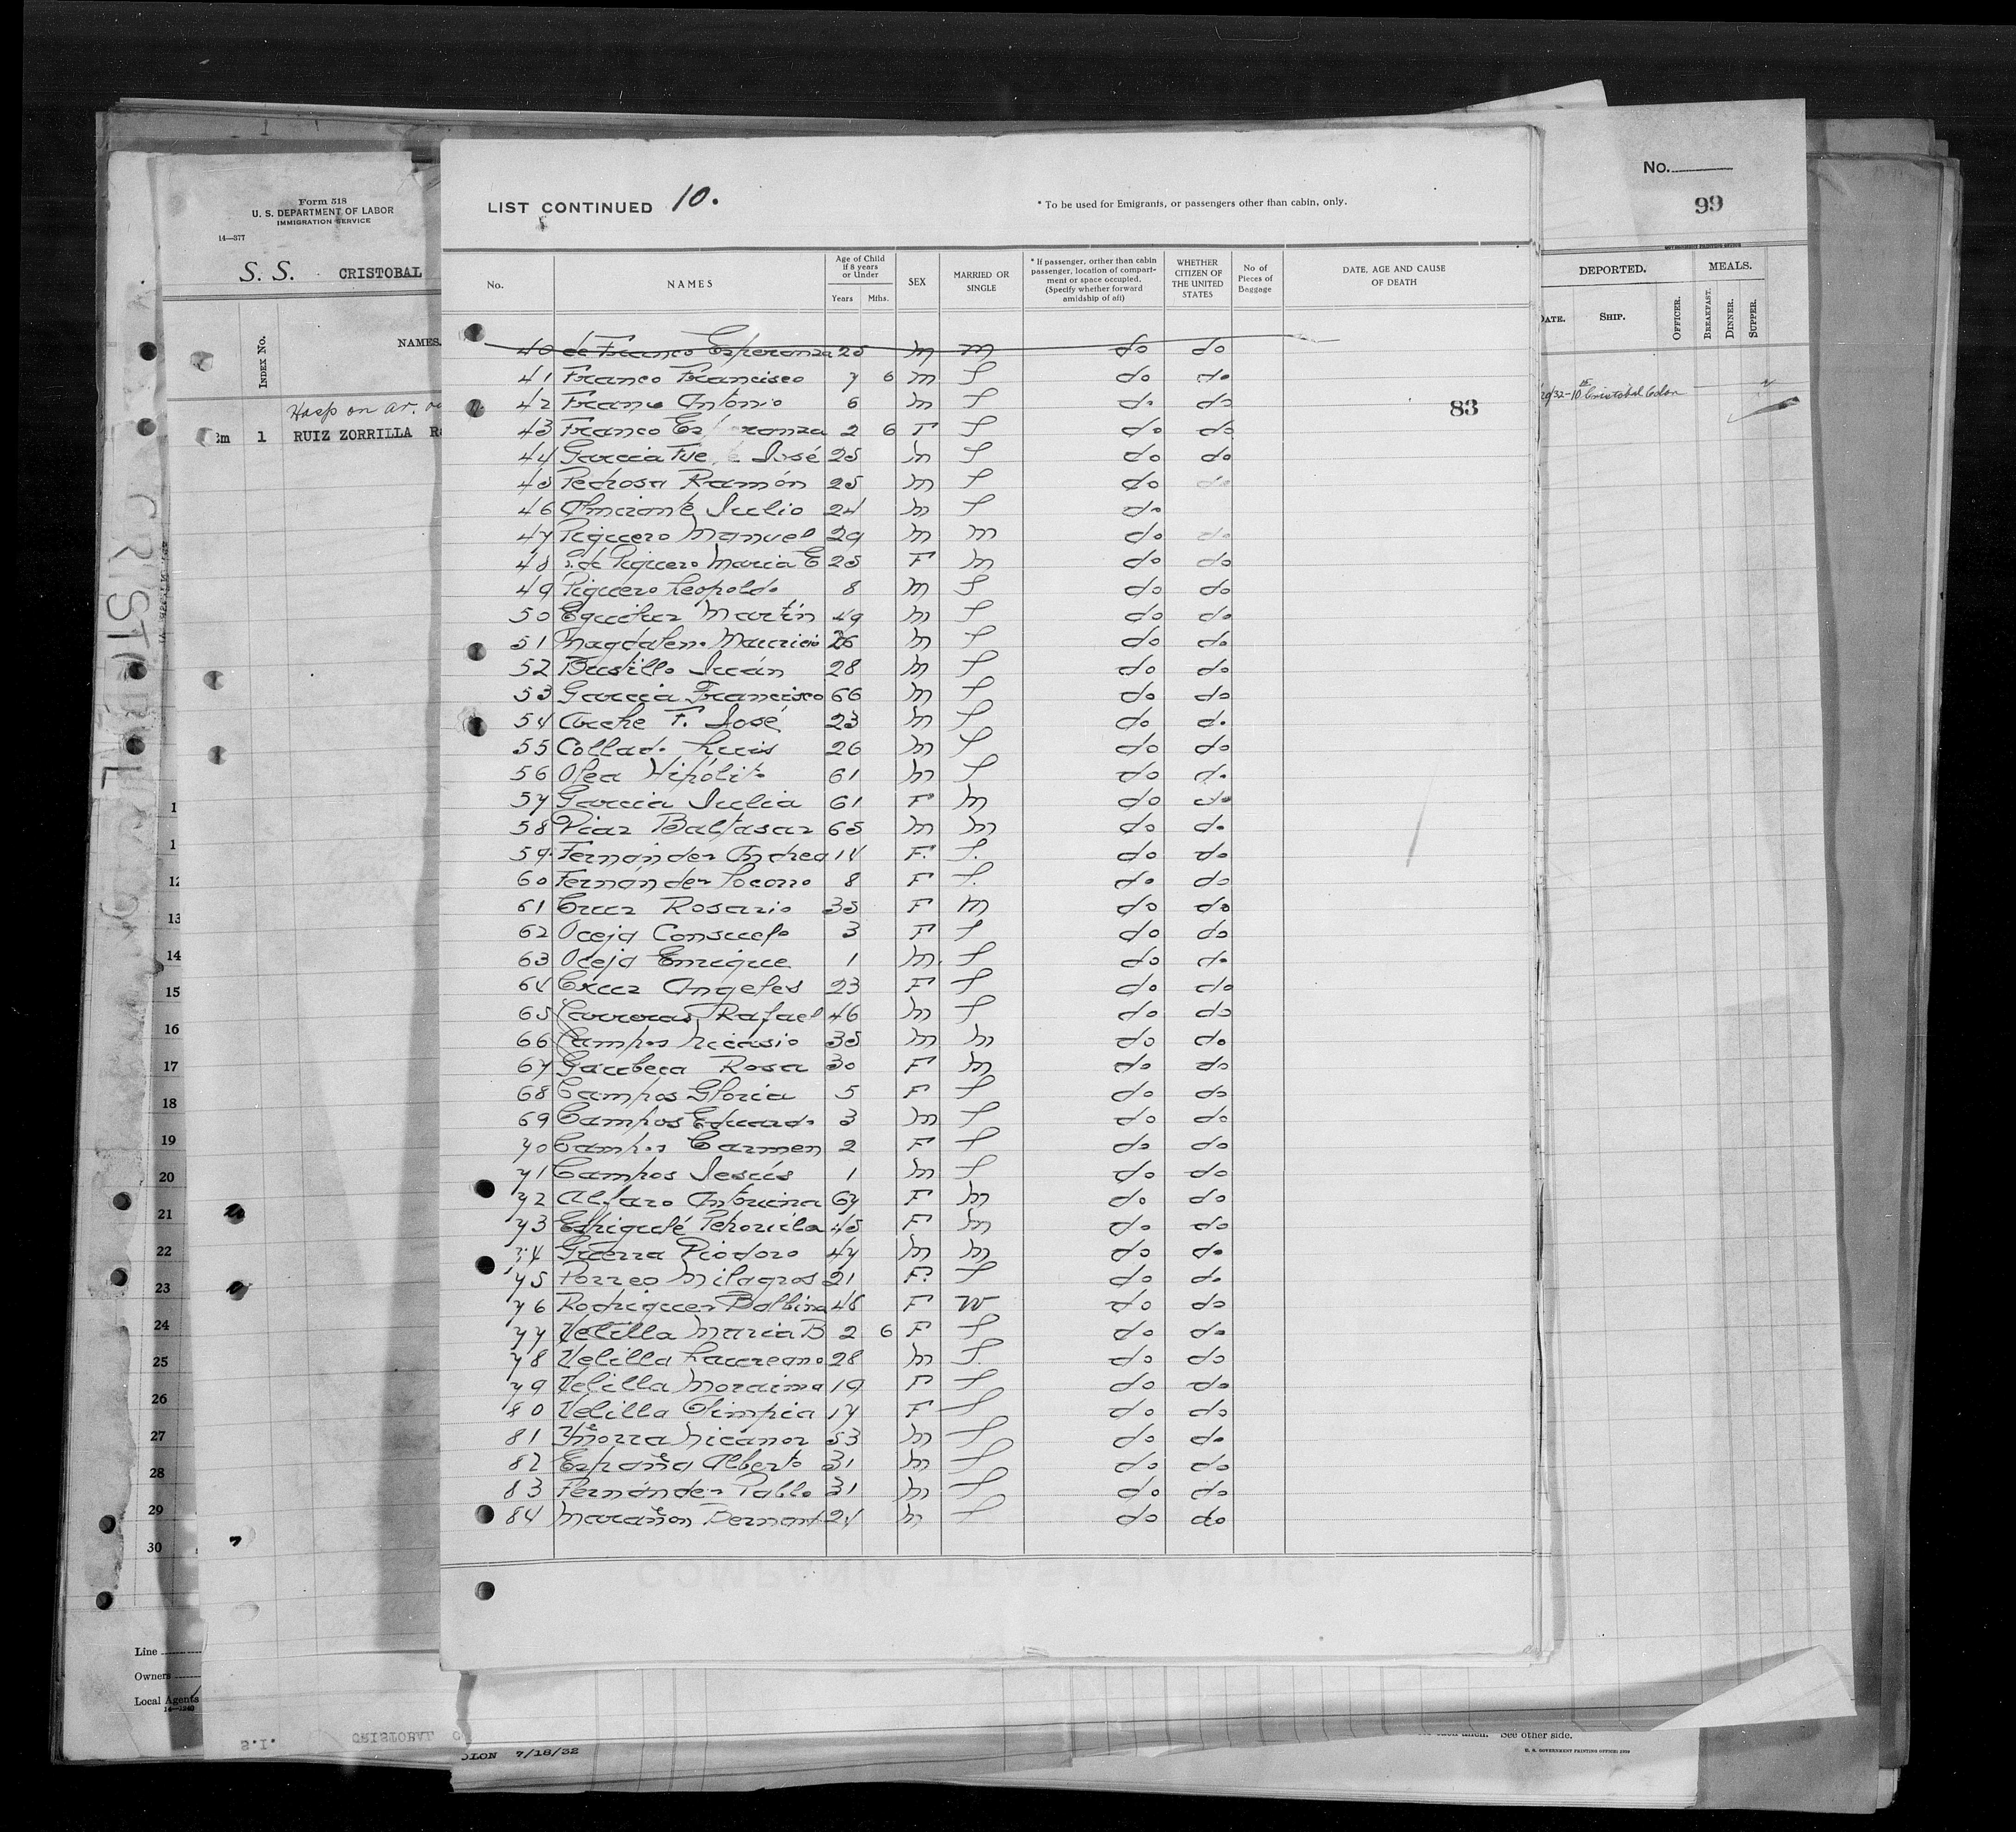 Form 518
U. S. DEPARTMENT OF LABOR
IMMIGRATION SERVICE
14—577
S. S. CRISTOBAL
INDEX No.
NAMES.
Hosp on ar.
1 RUIZ ZORRILLA
CRISTOBAL
12
13
14
15
16
17
18
19
20
21
22
23
24
25
26
27
28
29
30
Line
Owners
Local Agents
14—1240
S.I. CRISTOBAL
LIST CONTINUED 10.
* To be used for Emigrants, or passengers other than cabin, only.
No.
NAMES
Age of Child if 8 years or Under
Years Mths.
SEX
MARRIED OR SINGLE
* If passenger, orther than cabin passenger, location of compartment or space occupied. (Specify whether forward amidship of aft)
WHETHER CITIZEN OF THE UNITED STATES
No of Pieces of Baggage
DATE, AGE AND CAUSE OF DEATH
40 de Franco Esperanza 25 m m do do
41 Franco Francisco 7 6 m S do do
42 Franco Antonio 6 m S do do
83
43 Franco Esperanza 2 6 F S do do
44 Garcia José 25 m S do do
45 Pedrosa Ramón 25 m S do do
46 Almirante Julio 24 m S do
47 Piquero Manuel 29 m m do do
48 de Piquero Maria E 25 F m do do
49 Piquero Leopoldo 8 m S do do
50 Eguiluz Martín 49 m S do do
51 Magdaleno Mauricio 26 m S do do
52 Bustillo Juán 28 m S do do
53 Garcia Francisco 66 m S do do
54 Arche F. José 23 m S do do
55 Collado Luis 26 m S do do
56 Olea Hipólito 61 m S do do
57 Garcia Julia 61 F m do do
58 Piaz Baltasar 65 m m do do
59 Fernández Andrea 14 F. S. do do
60 Fernández Socorro 8 F S. do do
61 Cruz Rosario 35 F m do do
62 Oceja Consuelo 3 F S do do
63 Oceja Enrique 1 m. S do do
64 Cruz Angeles 23 F S do do
65 Carreras Rafael 46 m S do do
66 Campos Nicasio 35 m m do do
67 Gaubeca Rosa 30 F m do do
68 Campos Gloria 5 F S do do
69 Campos Eduardo 3 m S do do
70 Campos Carmen 2 F S do do
71 Campos Jesús 1 m S do do
72 Alfaro Antonina 67 F m do do
73 Petronila 45 F m do do
74 Guerra Diodoro 47 m m do do
75 Porreo Milagros 21 F. S do do
76 Rodriguez Balbina 48 F W do do
77 Velilla Maria B 2 6 F S do do
78 Velilla Laureano 28 m S. do do
79 Velilla Moraima 19 F S do do
80 Velilla Olimpia 17 F S do do
81 Yñorra Nicanor 53 m S do do
82 España Alberto 31 m S do do
83 Fernández Pablo 31 m S do do
84 Marañon Bernard 24 m S do do
COMPAÑIA TRASATLANTICA
No.
99
GOVERNMENT PRINTING OFFICE
DEPORTED.
MEALS.
DATE.
SHIP.
OFFICER.
BREAKFAST.
DINNER.
SUPPER.
Cristobal Colon
OLON 7/18/32
See other side.
U. S. GOVERNMENT PRINTING OFFICE: 1929